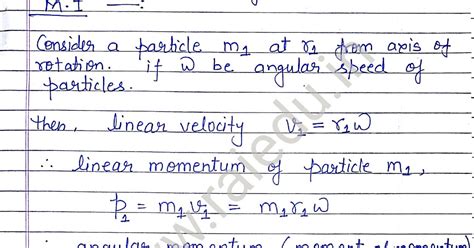 M.I —:
Consider a particle m₁ at r₁ from axis of
rotation. if ω be angular speed of
particles.
then, linear velocity v₁ = r₁ω
∴ linear momentum of particle m₁,
p₁ = m₁v₁ = m₁r₁ω
∴ angular momentum (moment of momentum)
www.raiedu.in